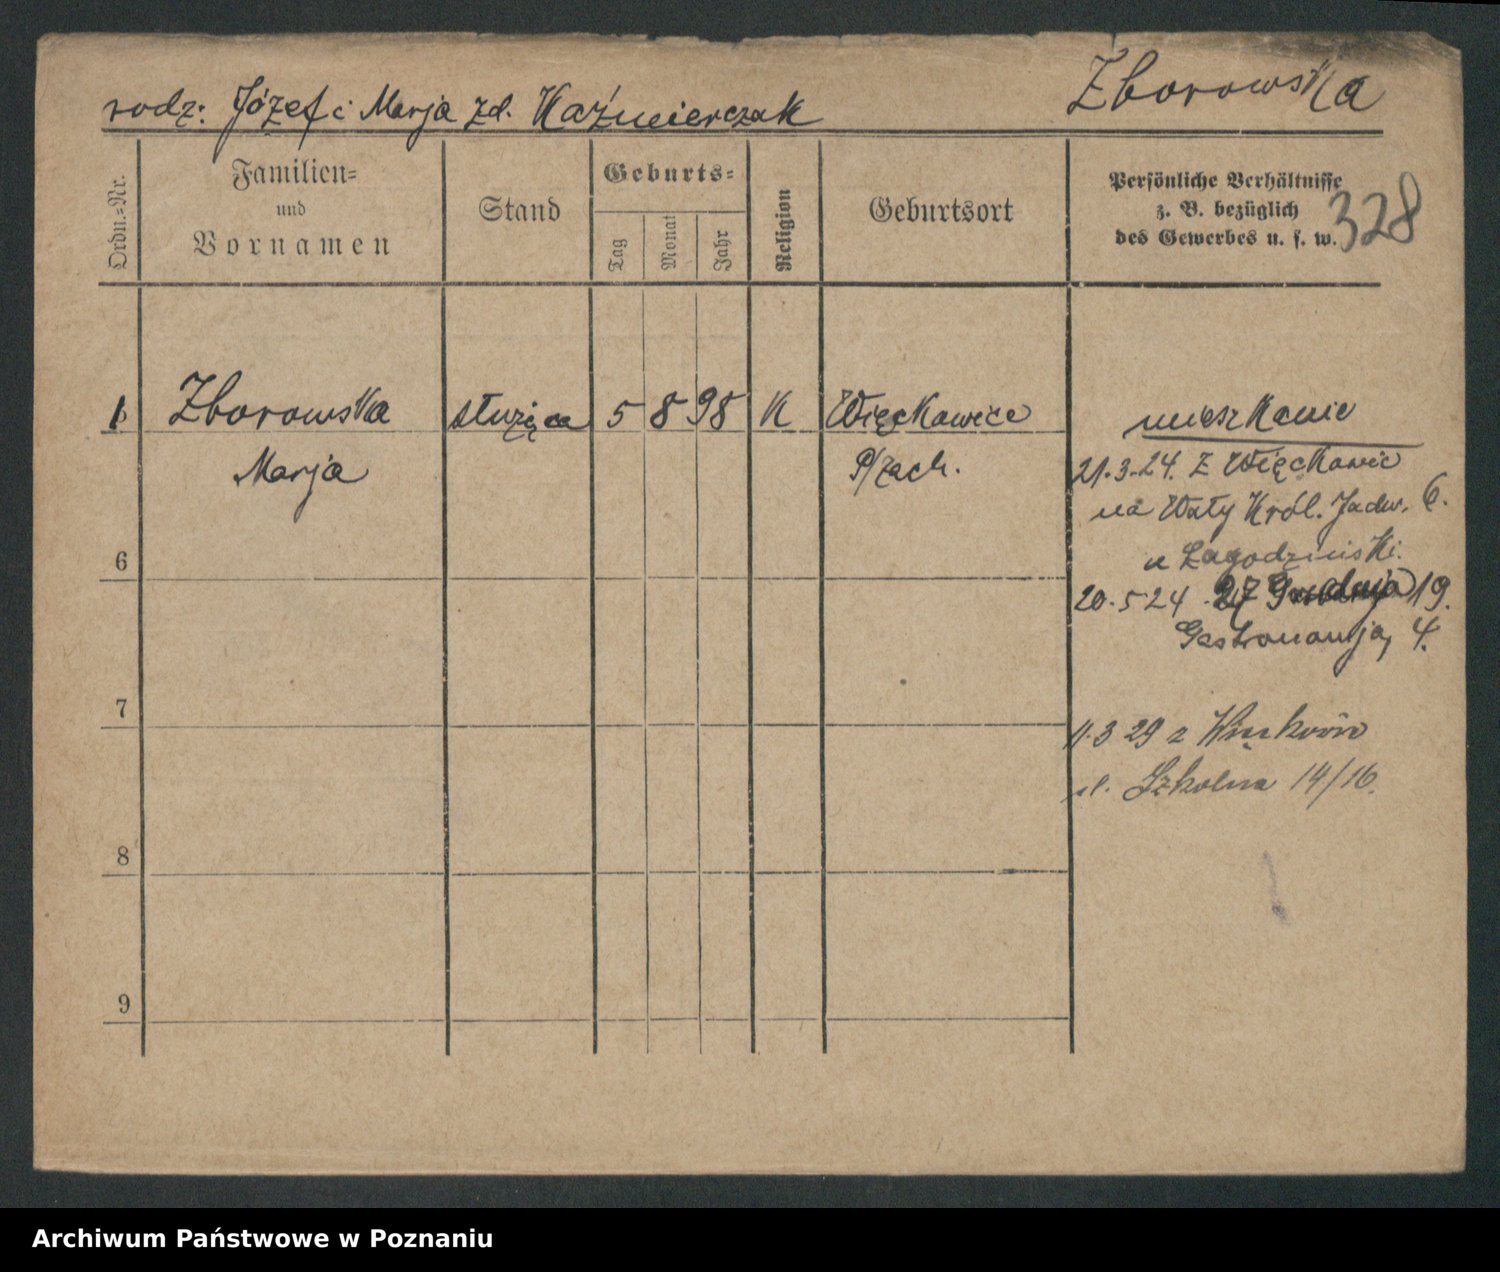 Zborowska
rodz: Józef i Marja zd. Kaźmierczak
Ordn.=Nr.
Familien=
und
Vornamen
Stand
Geburts=
Tag
Monat
Jahr
Religion
Geburtsort
Persönliche Verhältnisse
z. B. bezüglich
des Gewerbes u. s. w.
328
1 Zborowska służąca 5 8 98 K Więckowice
Marja P/zach.
mieszkanie
21.3.24. z Więckowic
na Wały Król. Jadw. 6.
u Łagodziński.
20.5.24 27 Grudnia 19.
Gastronomja, 4.
11.3 29 z
ul. Szkolna 14/16.
6
7
8
9
Archiwum Państwowe w Poznaniu